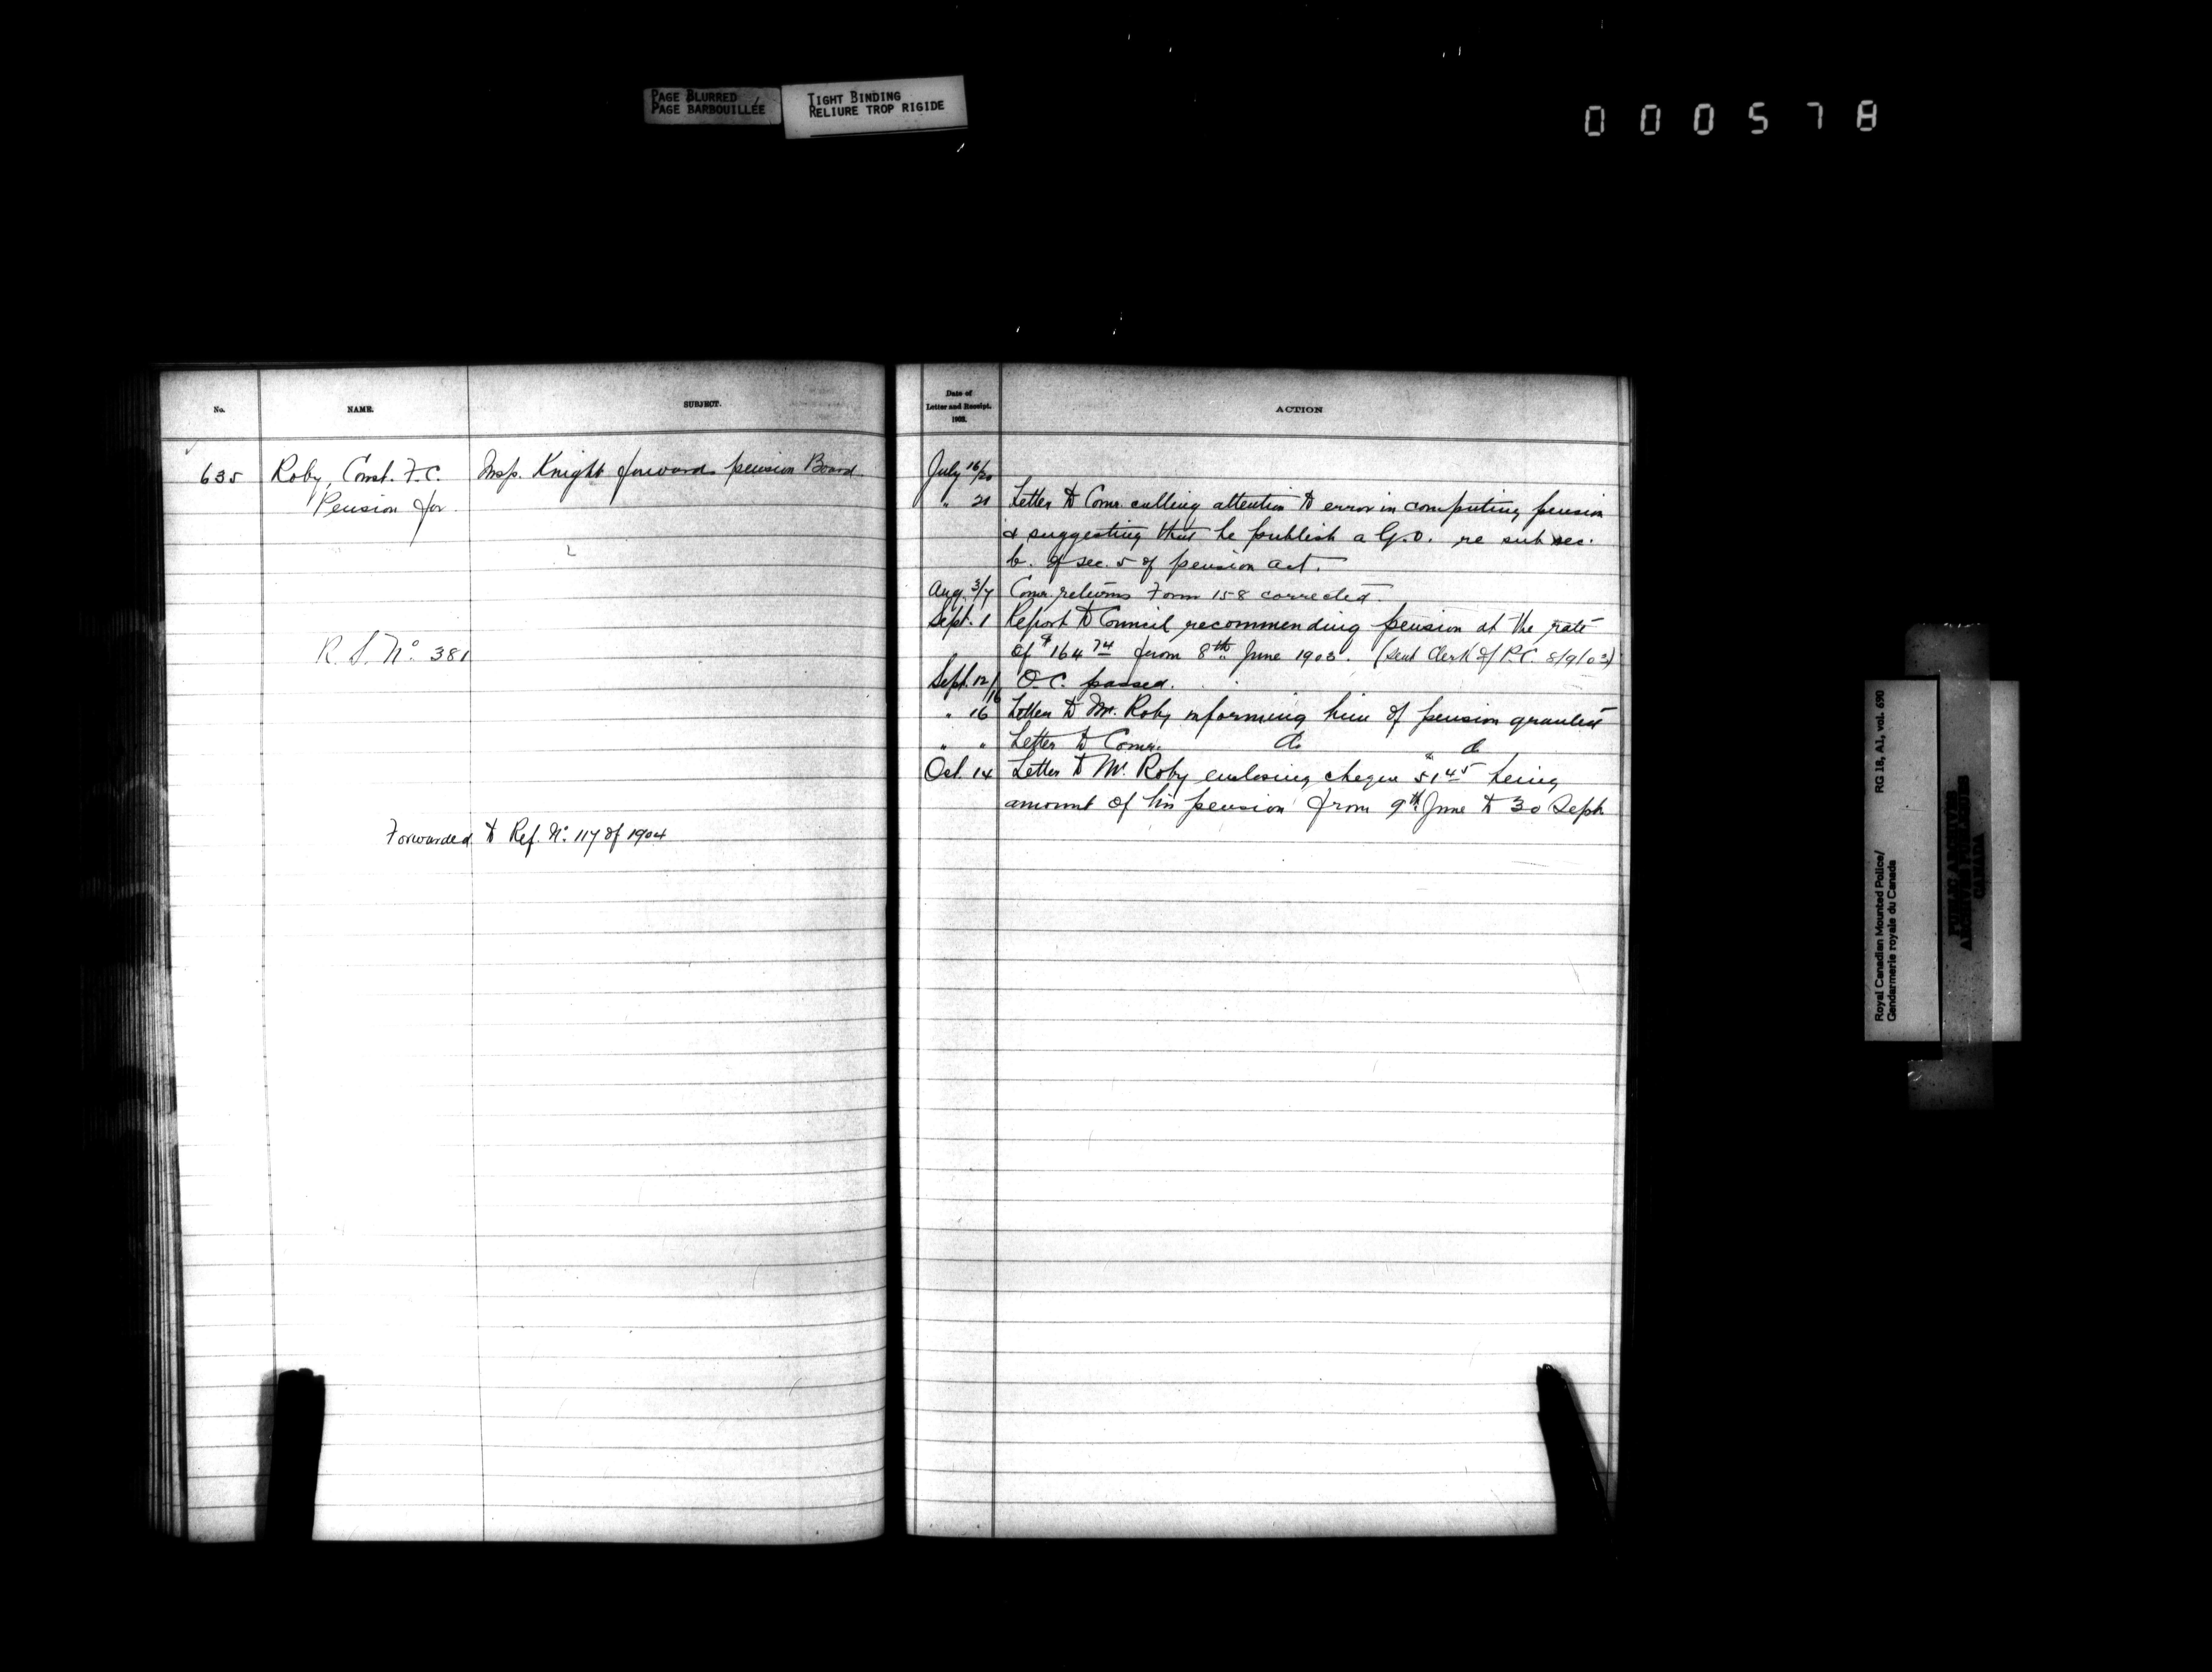 PAGE BLURRED
PAGE BARBOUILLÉE
TIGHT BINDING
RELIURE TROP RIGIDE
000578
No.
NAME.
SUBJECT.
635
Roby, Const. F.C.
Pension for
Insp. Knight forwards pension Board
R.S. No. 381
Forwarded to Ref. No. 117 of 1904
Date of
Letter and Receipt.
1903.
ACTION
July 16/20
" 21 Letter to Comr. calling attention to error in computing pension
& suggesting that he publish a G.O. re sub sec.
b. of sec. 5 of pension act.
Aug. 3/7 Comr. returns Form 158 corrected.
Sept. 1 Report to Council recommending pension at the rate
of $164 74 from 8th June 1903. (Sent Clerk of P.C. 8/9/03)
Sept. 12/16 O.C. passed.
" 16 Letter to Mr. Roby informing him of pension granted
" " Letter to Comr. do do
Oct. 14 Letter to Mr. Roby enclosing cheque $51 45 being
amount of his pension from 9th June to 30 Sept.
Royal Canadian Mounted Police/
Gendarmerie royale du Canada
RG 18, A1, vol. 690
PUBLIC ARCHIVES
ARCHIVES PUBLIQUES
CANADA